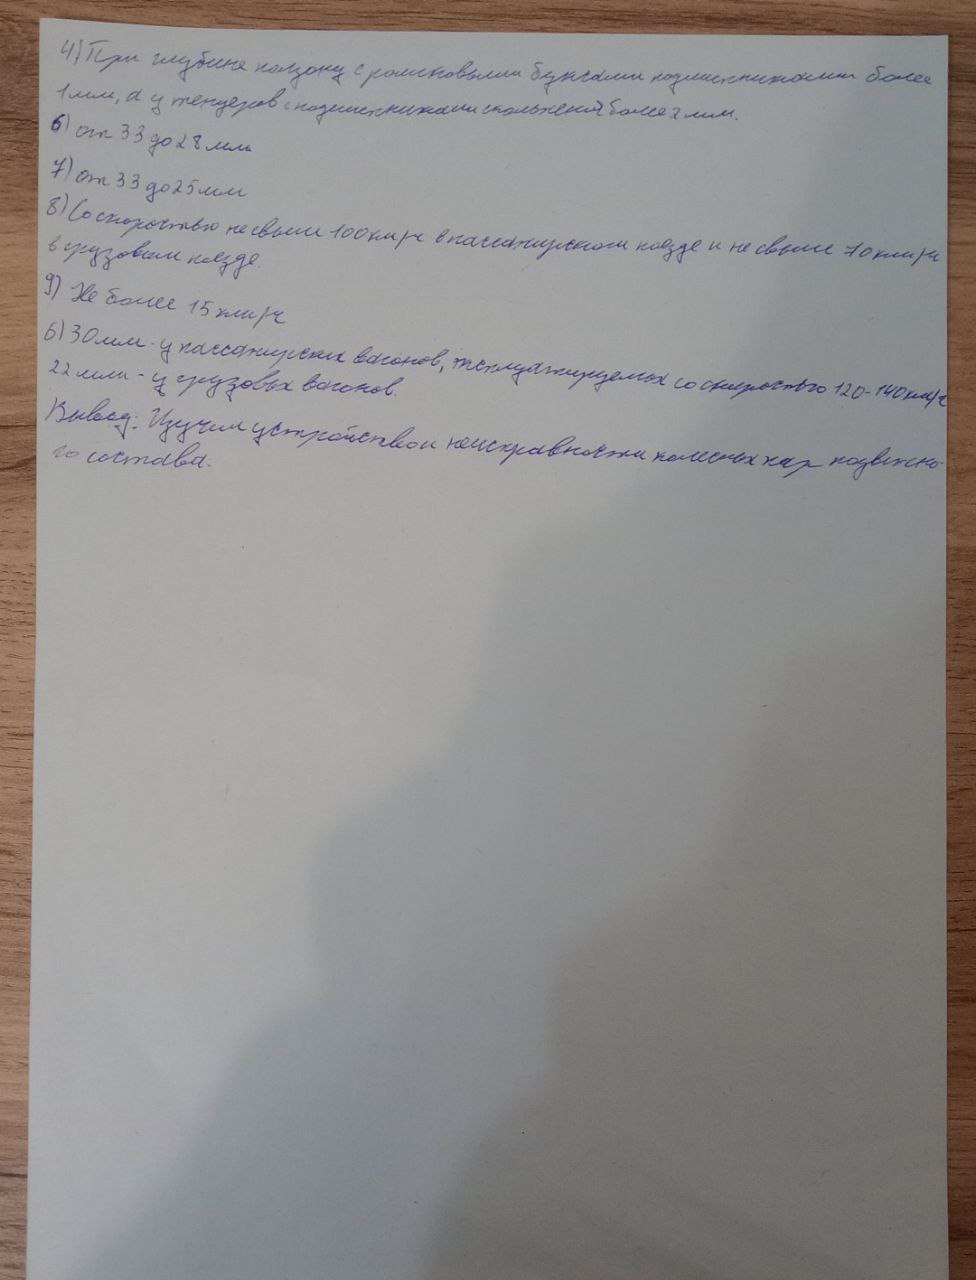 4) При глубине ползону с роликовыми буксами подшипниками более
1 мм, а у тендеров с подшипниками скольжений более 2 мм.
6) от 33 до 28 мм
7) от 33 до 25 мм
8) Со скоростью не свыше 100 км/ч в пассажирском поезде и не свыше 70 км/ч
в грузовом поезде.
9) Не более 15 км/ч
6) 30 мм - у пассажирских вагонов, эксплуатируемых со скоростью 120-140 км/ч
22 мм - у грузовых вагонов.
Вывод: Изучил устройство и неисправности колесных пар подвижно-
го состава.